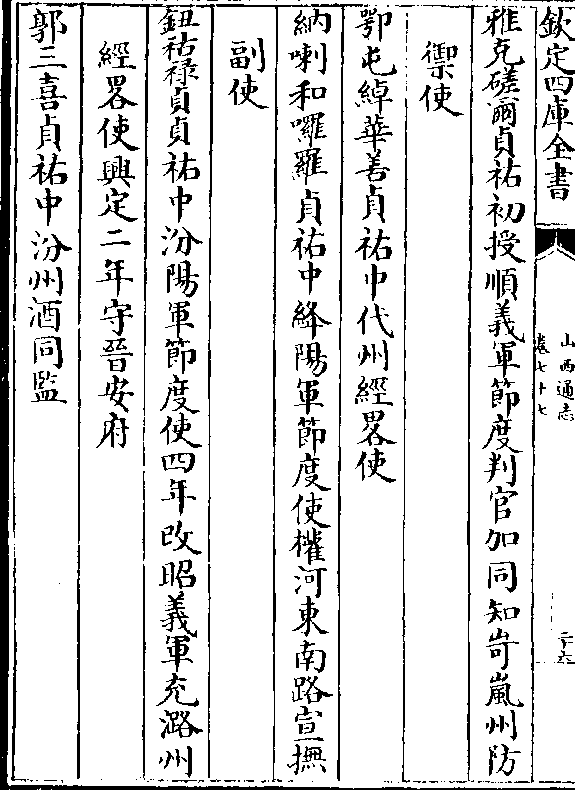 欽定四庫全書
山西通志
卷七十七
二十六
雅克磋爾貞祐初授順義軍節度判官加同知岢嵐州防
禦使
鄂屯綽華善貞祐中代州經畧使
納喇和囉羅貞祐中絳陽軍節度使權河東南路宣撫
副使
鈕祜祿貞貞祐中汾陽軍節度使四年改昭義軍充潞州
經畧使興定二年守晉安府
郭三喜貞祐中汾州酒同監